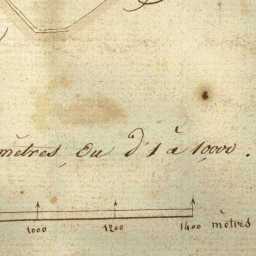 mètres, ou d'1 à 10,000.
1000 1200 1400 mètres